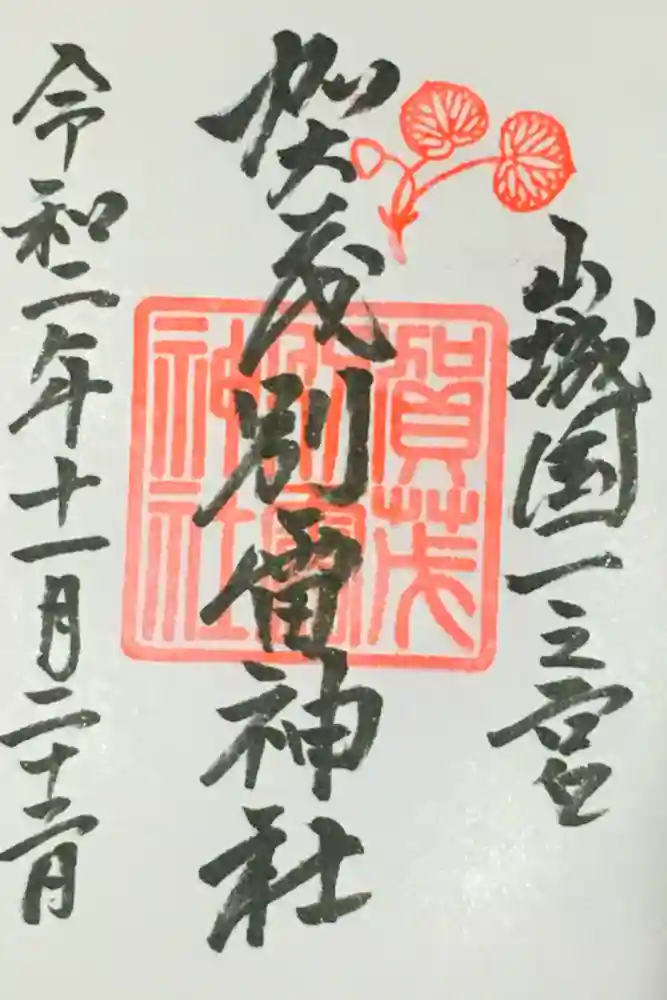 山城国一之宮
賀茂別雷神社
賀茂
別雷
神社
令和二年十一月二十二日